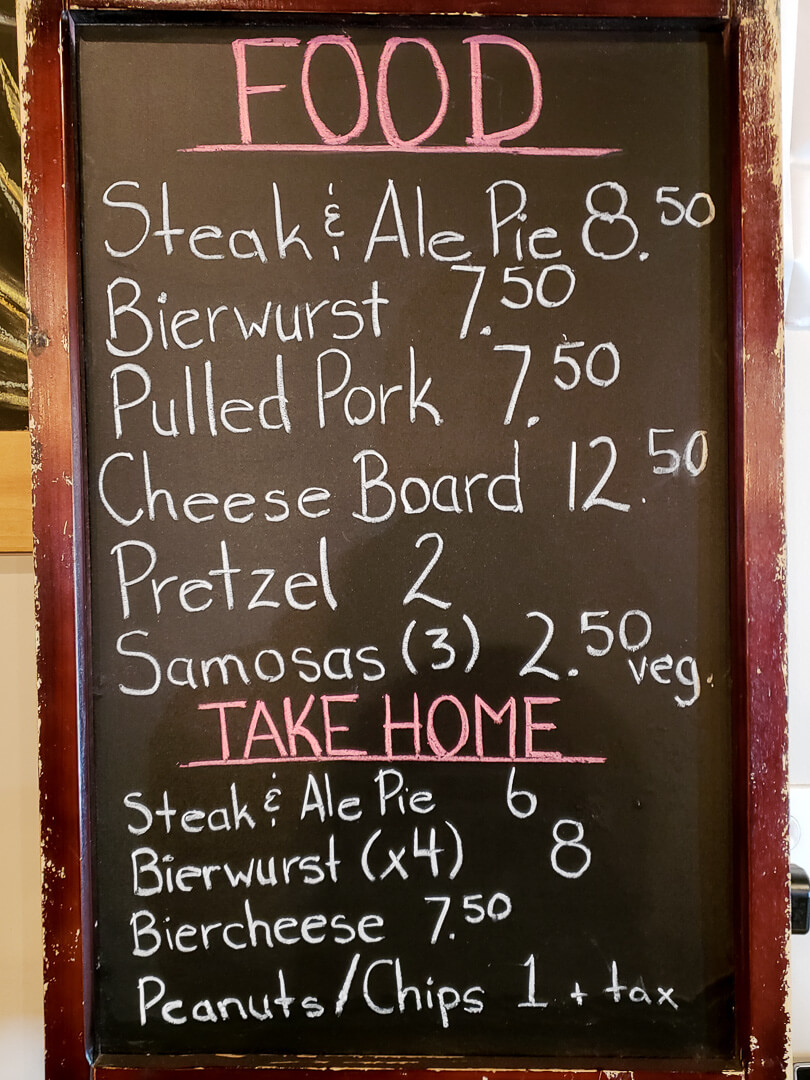 FOOD
Steak & Ale Pie 8.50
Bierwurst 7.50
Pulled Pork 7.50
Cheese Board 12.50
Pretzel 2
Samosas (3) 2.50 veg.
TAKE HOME
Steak & Ale Pie 6
Bierwurst (x4) 8
Biercheese 7.50
Peanuts/Chips 1 + tax